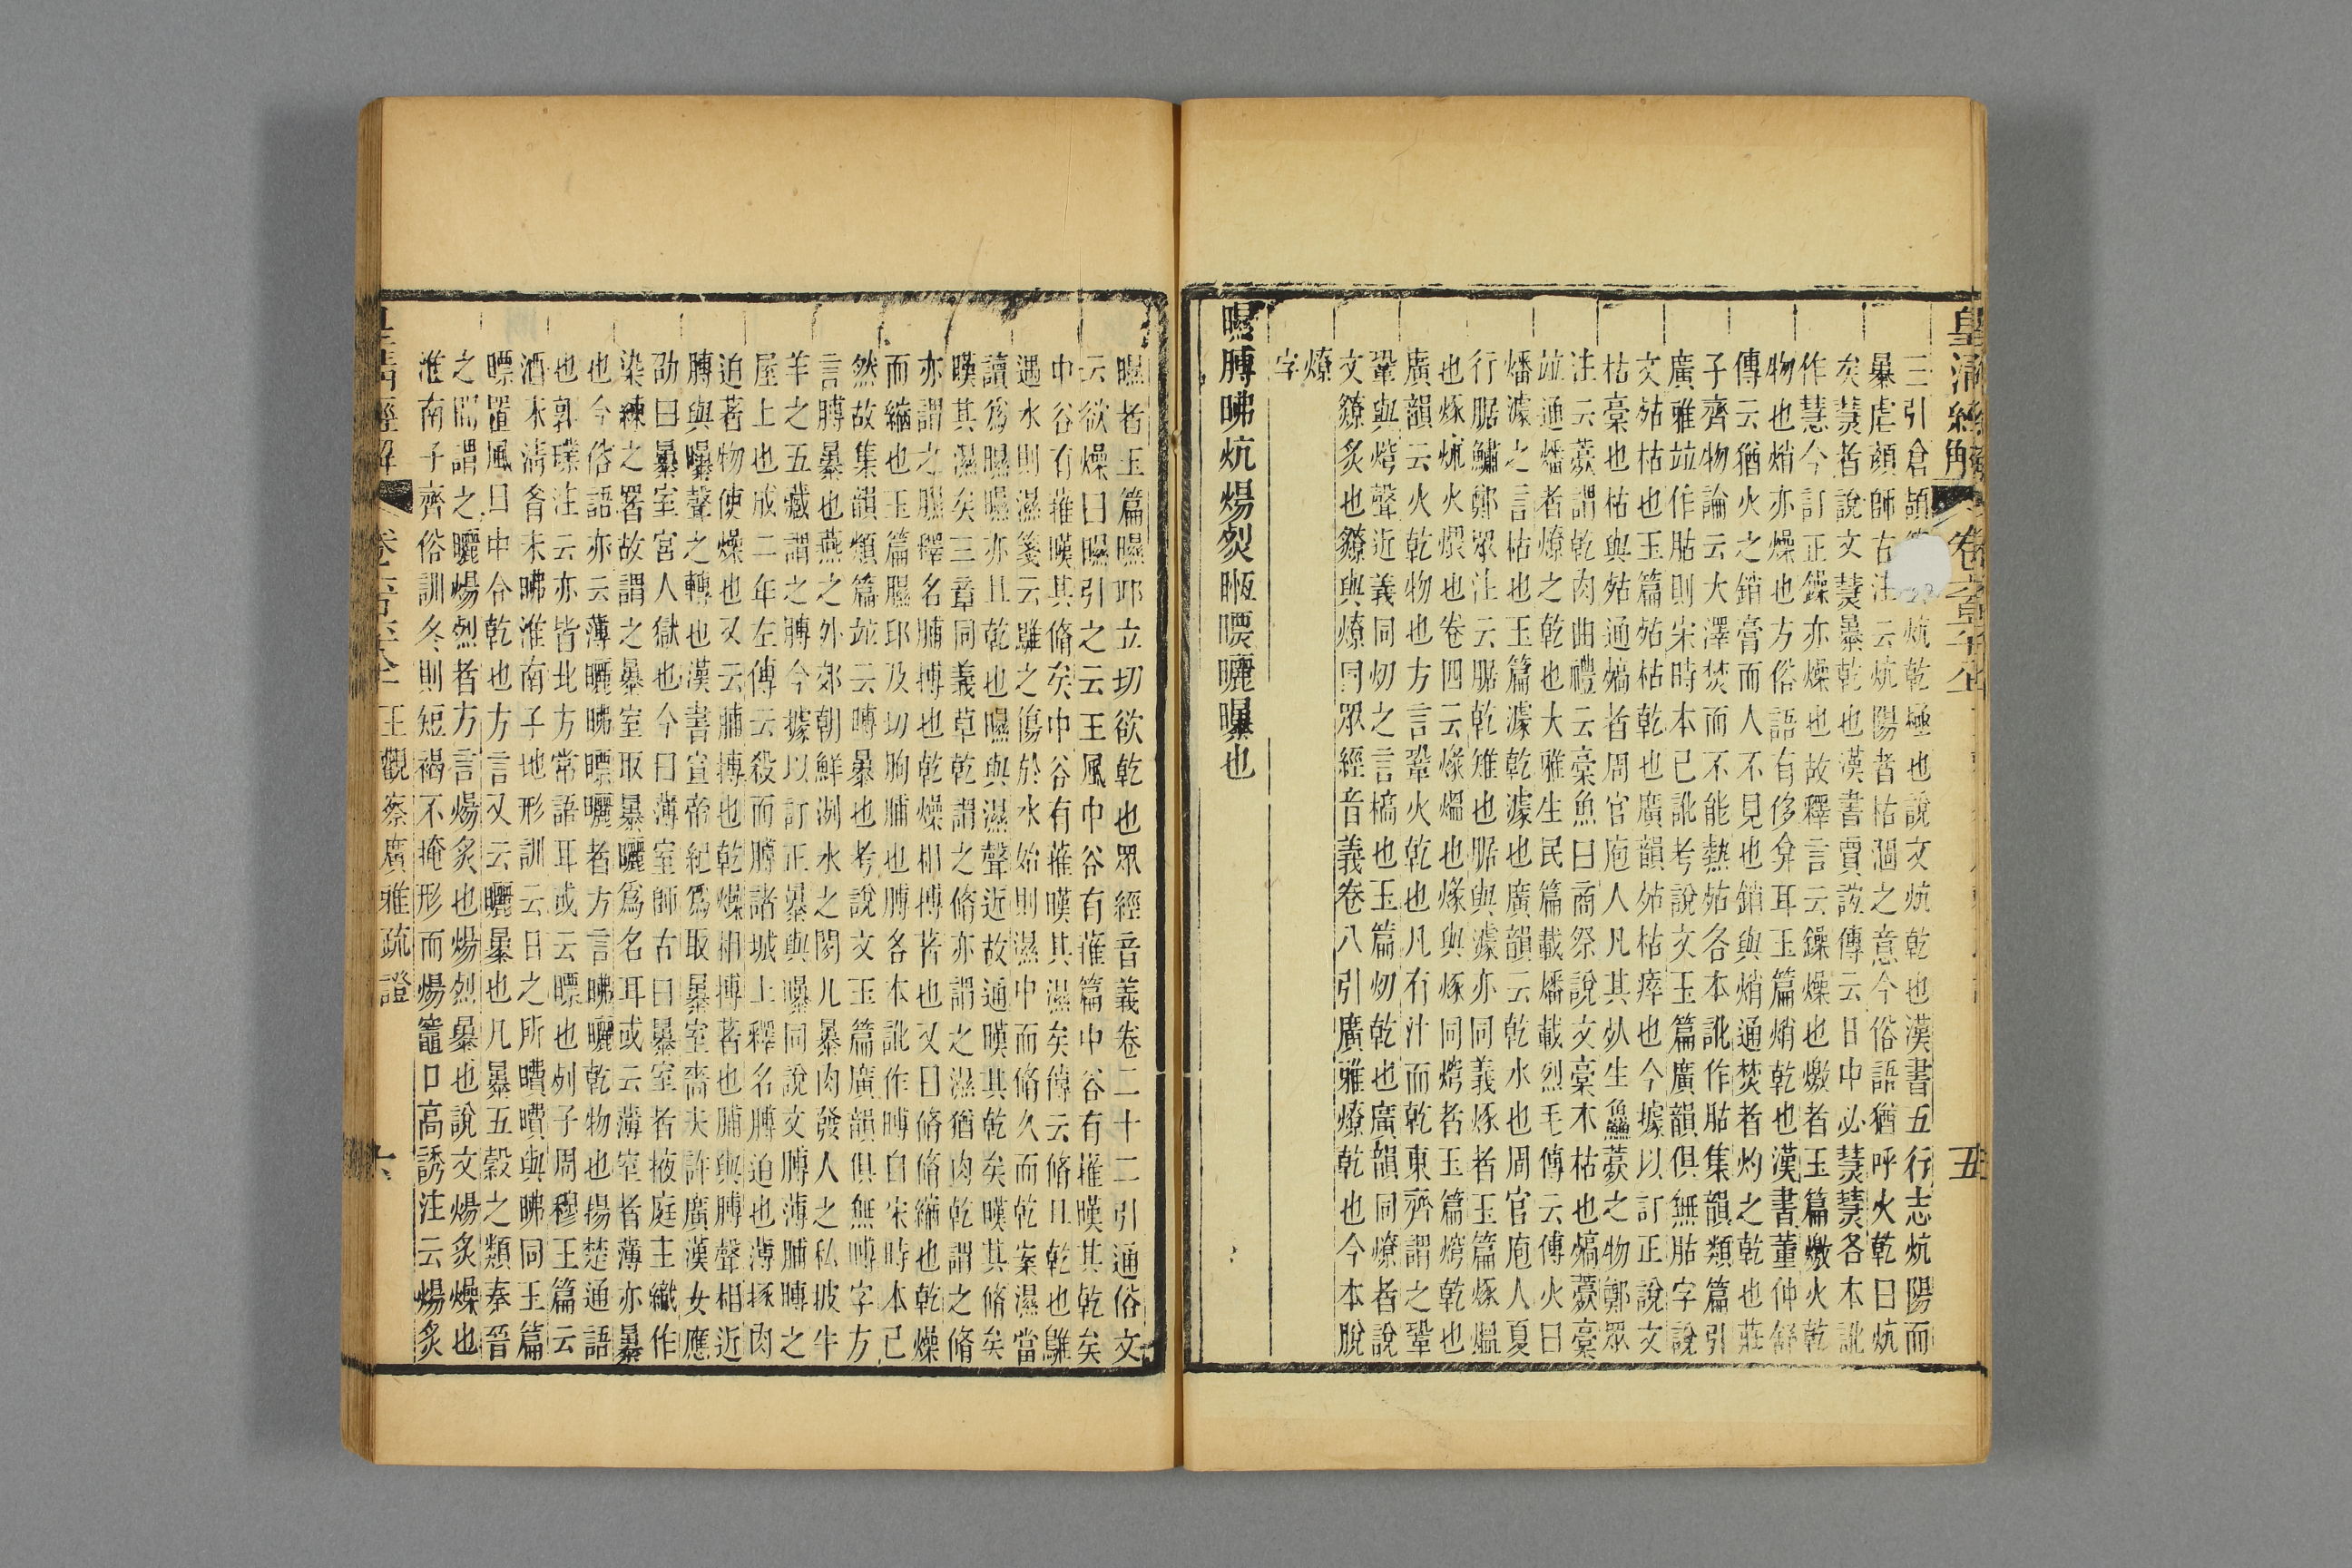 皇清經解 卷六百 五
三引倉頡 炕乾極也說文炕乾也漢書五行志炕陽而
暴虐顏師古注云炕陽者枯涸之意今俗語猶呼火乾曰炕
矣熭者說文熭暴乾也漢書賈誼傳云日中必熭熭各本訛
作慧今訂正鐰亦燥也故釋言云鐰燥也㷅者玉篇㷅火乾
物也㷅亦燥也方俗語有侈弇耳玉篇焇乾也漢書董仲舒
傳云猶火之銷膏而人不見也銷與焇通焚者灼之乾也莊
子齊物論云大澤焚而不能熱㱠各本訛作胋集韻類篇引
廣雅竝作胋則宋時本已訛考說文玉篇廣韻俱無胋字說
文㱠枯也玉篇㱠枯乾也廣韻㱠枯瘁也今據以訂正說文
枯槀也枯與㱠通熇者周官庖人凡其死生鱻薧之物鄭眾
注云薧謂乾肉曲禮云槀魚曰商祭說文槀木枯也熇薧槀
竝通燔者燎之乾也大雅生民篇載燔載烈毛傳云傅火曰
燔㵠之言枯也玉篇㵠乾㵠也廣韻云乾水也周官庖人夏
行腒鱐鄭眾注云腒乾雉也腒與㵠亦同義㶼者玉篇㶼熅
也㶼炕火煨也卷四云㷶熅也㷶與㶼同㷵者玉篇㷵乾也
廣韻云火乾物也方言鞏火乾也凡有汁而乾東齊謂之鞏
鞏與㷵聲近義同㓞之言槁也玉篇㓞乾也廣韻同燎者說
文尞炙也尞與燎同眾經音義卷八引廣雅燎乾也今本脫
燎
字
㬤膊昲炕煬烈暅㬓曬曝也
㬤者玉篇㬤邱立切欲乾也眾經音義卷二十二引通俗文
云欲燥曰㬤引之云王風中谷有蓷篇中谷有蓷暵其乾矣
中谷有蓷暵其脩矣中谷有蓷暵其濕矣傳云脩且乾也鵻
遇水則濕箋云鵻之傷於水始則濕中而脩久而乾案濕當
讀爲㬤㬤亦且乾也㬤與濕聲近故通暵其乾矣暵其脩矣
暵其濕矣三章同義草乾謂之脩亦謂之濕猶肉乾謂之脩
亦謂之㬤釋名脯搏也乾燥相搏著也又曰脩脩縮也乾燥
而縮也玉篇㬤邱及切朐脯也膊各本訛作㬍自宋時本已
然故集韻類篇竝云㬍暴也考說文玉篇廣韻俱無㬍字方
言膊暴也燕之外郊朝鮮洌水之閒凡暴肉發人之私披牛
羊之五藏謂之膊今據以訂正暴與曝同說文膊薄脯膊之
屋上也成二年左傳云殺而膊諸城上釋名膊迫也薄椓肉
迫著物使燥也又云脯搏也乾燥相搏著也脯與膊聲相近
膊與曝聲之轉也漢書宣帝紀爲取暴室嗇夫許廣漢女應
劭曰暴室宮人獄也今曰薄室師古曰暴室者掖庭主織作
染練之署故謂之暴室取暴曬爲名耳或云薄室者薄亦暴
也今俗語亦云薄曬昲㬓曬者方言昲曬乾物也揚楚通語
也郭璞注云亦皆北方常語耳或云㬓也列子周穆王篇云
酒未淸肴未昲淮南子地形訓云日之所曊曊與昲同玉篇
㬓置風日中令乾也方言又云曬暴也凡暴五穀之類秦晉
之閒謂之曬煬烈者方言煬炙也煬烈暴也說文煬炙燥也
淮南子齊俗訓冬則短褐不掩形而煬竈口高誘注云煬炙
皇清經解 卷 王觀察廣雅疏證 六